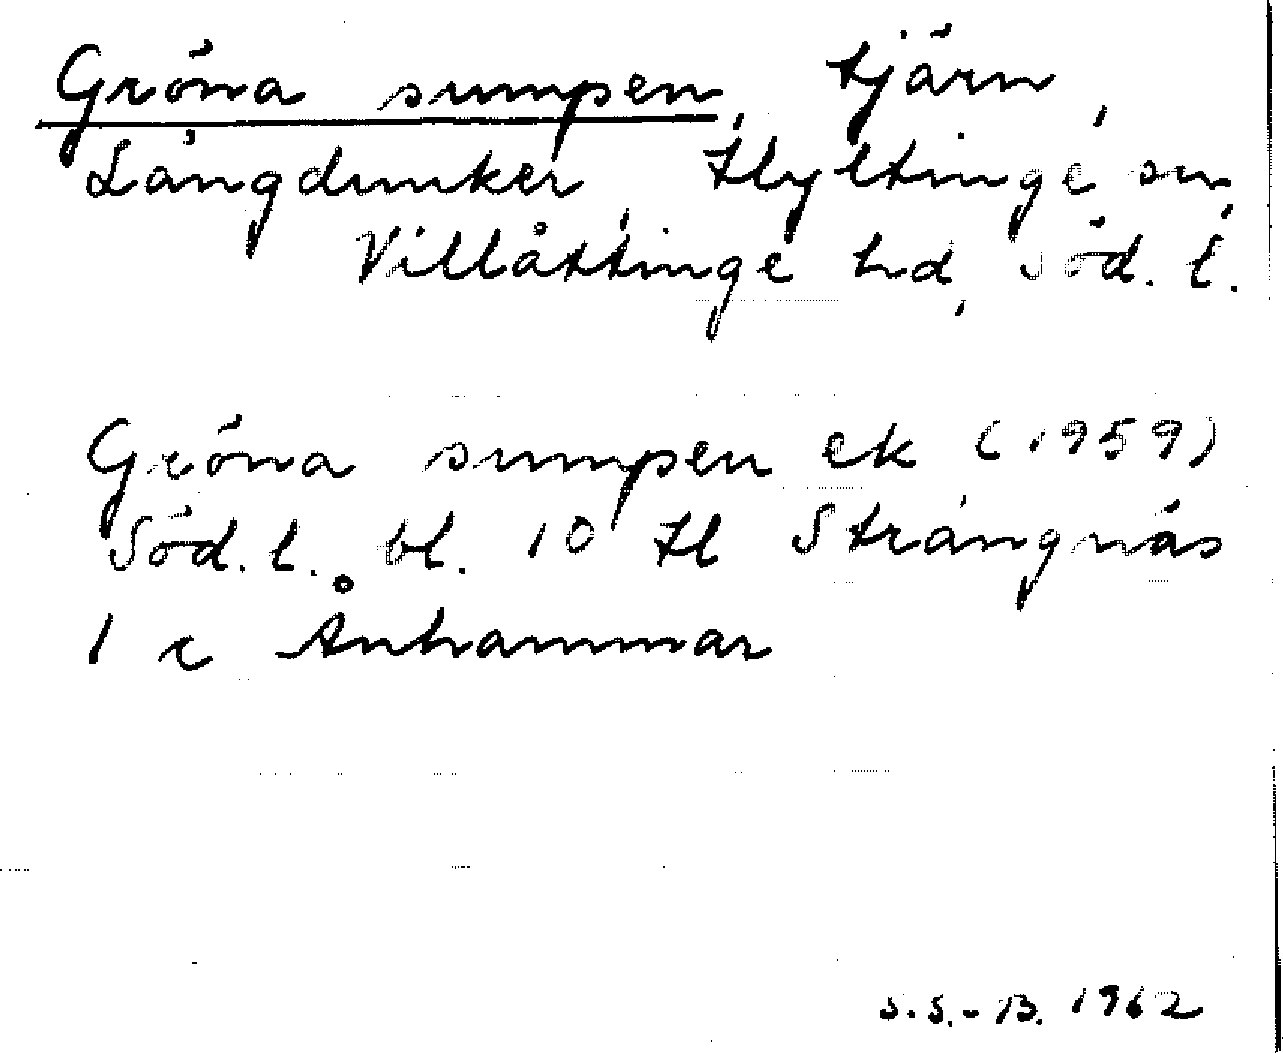 Gröna sumpen, tjärn,
Långdunker, Hyltinge sn,
Villåttinge hd, Söd. l.
Gröna sumpen ek (1959)
Söd. l. bl. 10 tl Strängnäs
1 c Ånhammar
S.S.-B. 1962